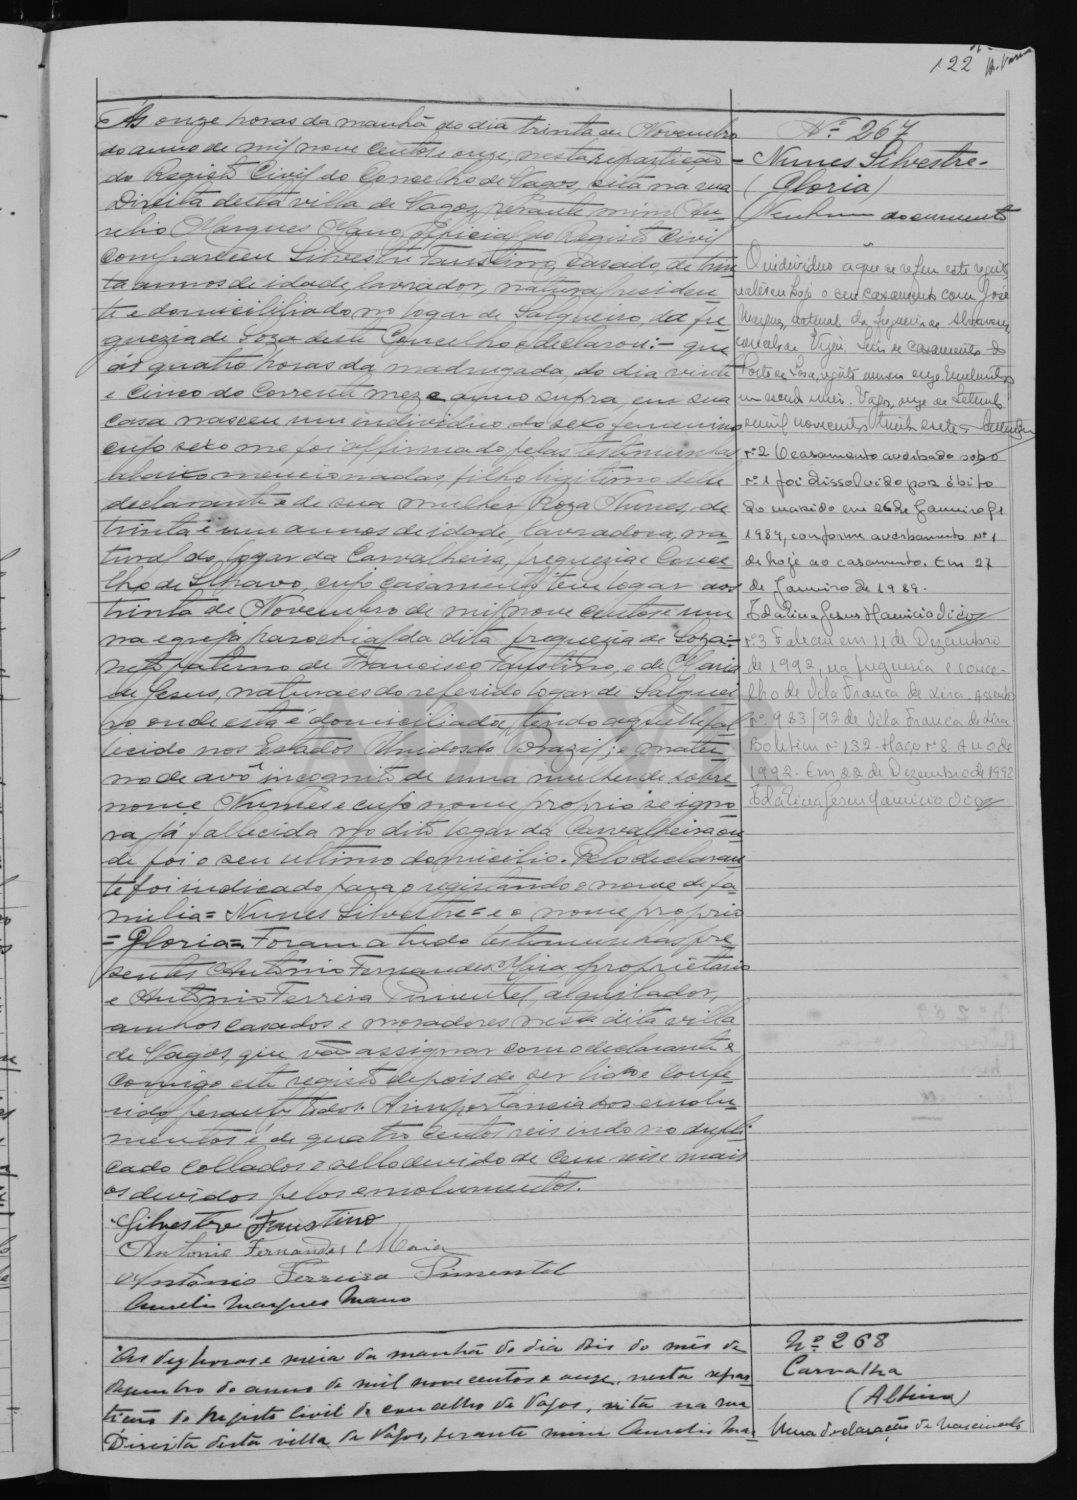 122
Ás onze horas da manhã do dia trinta de Novembro
do anno de mil nove centos e onze, nesta repartição
do Registo Civil do Concelho de Vagos, sita na rua
Direita desta villa de Vagos, perante mim Au-
relio Marques Mano, official do Registo Civil
compareceu Silvestre Faustino, casado, de trin-
ta annos de idade, lavrador, natural, residen-
te e domiciliado no logar de Salgueiro, da fre-
guezia de Soza deste Concelho e declarou: – que
ás quatro horas da madrugada do dia vinte
e cinco do corrente mez e anno supra, em sua
casa nasceu um individuo do sexo femenino
cujo sexo me foi affirmado pelas testimunhas
abaixo mencionadas, filho legitimo delle
declarante e de sua mulher Roza Nunes, de
trinta e um annos de idade, lavradora, na-
tural do logar da Carvalheira, freguezia e Conce-
lho de Ilhavo, cujo casamento teve logar aos
trinta de Novembro de mil nove centos e um
na egreja parochial da dita freguezia de Soza:–
neto paterno de Francisco Faustino, e de Maria
de Jesus, naturaes do referido logar de Salguei-
ro onde esta é domiciliada, tendo aquelle fal-
lecido nos Estados Unidos do Brazil; e mater-
no de avô incognito de uma mulher de sobre-
nome Nunes e cujo nome proprio se igno-
ra já fallecida no dito logar da Carvalheira on-
de foi o seu ultimo domicilio. Pelo declaran-
te foi indicado para o registando o nome de fa-
milia = Nunes Silvestre = e o nome proprio
= Gloria =. Foram a tudo testimunhas pre-
sentes Antonio Fernandes Maia proprietario
e Antonio Ferreira Pimentel, alquilador,
ambos casados e moradores nesta dita villa
de Vagos, que vão assignar com o declarante e
comigo este registo depois de ser lido e confe-
rido perante todos. A importancia dos emolu-
mentos é de quatro centos reis indo no dupli-
cado collados o sello devido de cem reis e mais
os devidos pelos emolumentos.
Silvestre Faustino
Antonio Fernandes Maia
Antonio Ferreira Pimentel
Aurelio Marques Mano
Nº 267
Nunes Silvestre –
(Gloria)
Nenhum documento
O individuo a que se refere este registo
celebrou hoje o seu casamento com José
Marques, natural da freguesia de
concelho de casamento do
Posto de Soza, registo numero onze
Vagos, onze de Setembro
de mil novecentos trinta e sete
nº 2 O casamento averbado sob o
nº 1 foi dissolvido por óbito
do marido em 26 de Janeiro de
1984, conforme averbamento nº 1
de hoje ao casamento. Em 27
de Janeiro de 1989.
nº 3 Faleceu em 11 de Dezembro
de 1992, na freguesia e conce-
lho de Vila Franca de Xira. Assento
nº 983/92 de Vila Franca de Xira.
Boletim nº 132. Maço nº 8. Ano de
1992. Em 22 de Dezembro de 1992
ADAVR
Ás dez horas e meia da manhã do dia dois do mês de
Dezembro do anno de mil nove centos e onze, nesta repar-
tição do Registo Civil do concelho de Vagos, sita na rua
Direita desta villa de Vagos, perante mim Aurelio Mar-
Nº 268
Carvalha
(Albina)
Uma declaração de nascimento